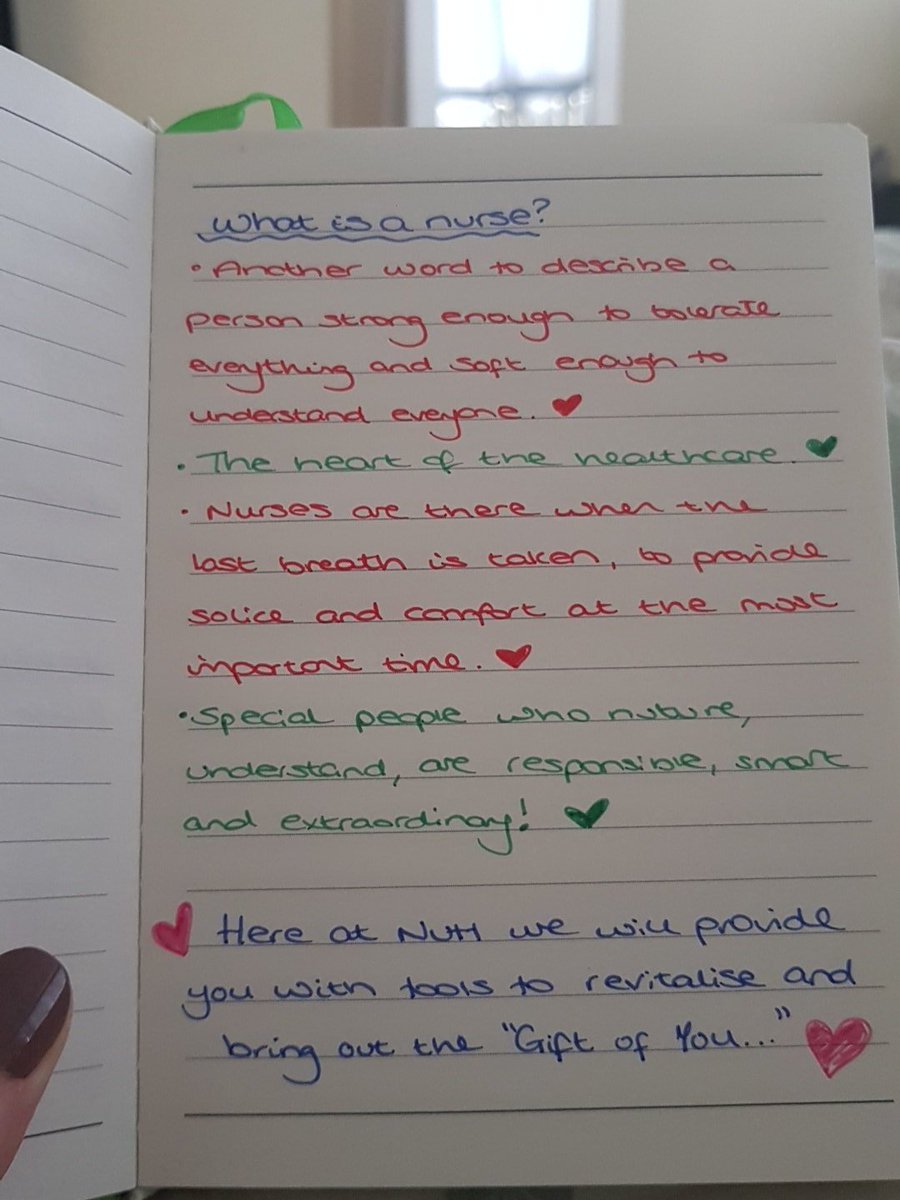 What is a nurse?
• Another word to describe a
person strong enough to tolerate
everything and soft enough to
understand everyone. ❤
• The heart of the healthcare. 💚
• Nurses are there when the
last breath is taken, to provide
solice and comfort at the most
important time. ❤
• Special people who nuture,
understand, are responsible, smart
and extraordinary! 💚
Here at NUH we will provide
you with tools to revitalise and
bring out the "Gift of You..."